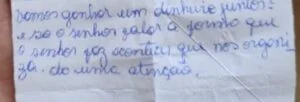 vamos ganhar um dinheiro juntos:
e só o senhor falar a forma que
o senhor faz acontecer que nos organi
za. da uma atenção.